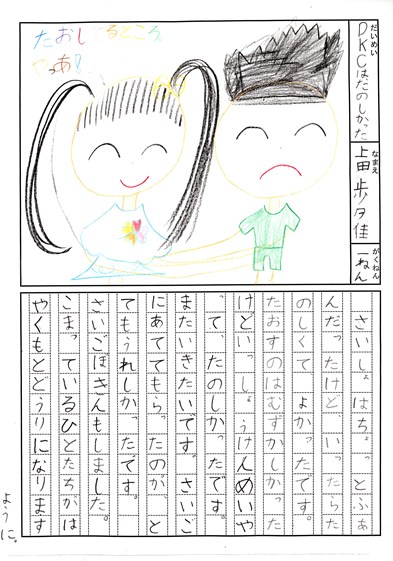 だいめい
DKCはたのしかった
なまえ
上田歩夕佳
がくねん
一ねん
たおしてるところ
さいしょはちょっとふあ
んだったけど、いったらた
のしくてよかったです。
たおすのはむずかしかった
けどいっしょうけんめいや
って、たのしかったです。
またいきたいです。さいご
にあててもらったのが、と
てもうれしかったです。
さいごぼきんもしました。
こまっているひとたちがは
やくもとどうりになります
ように。